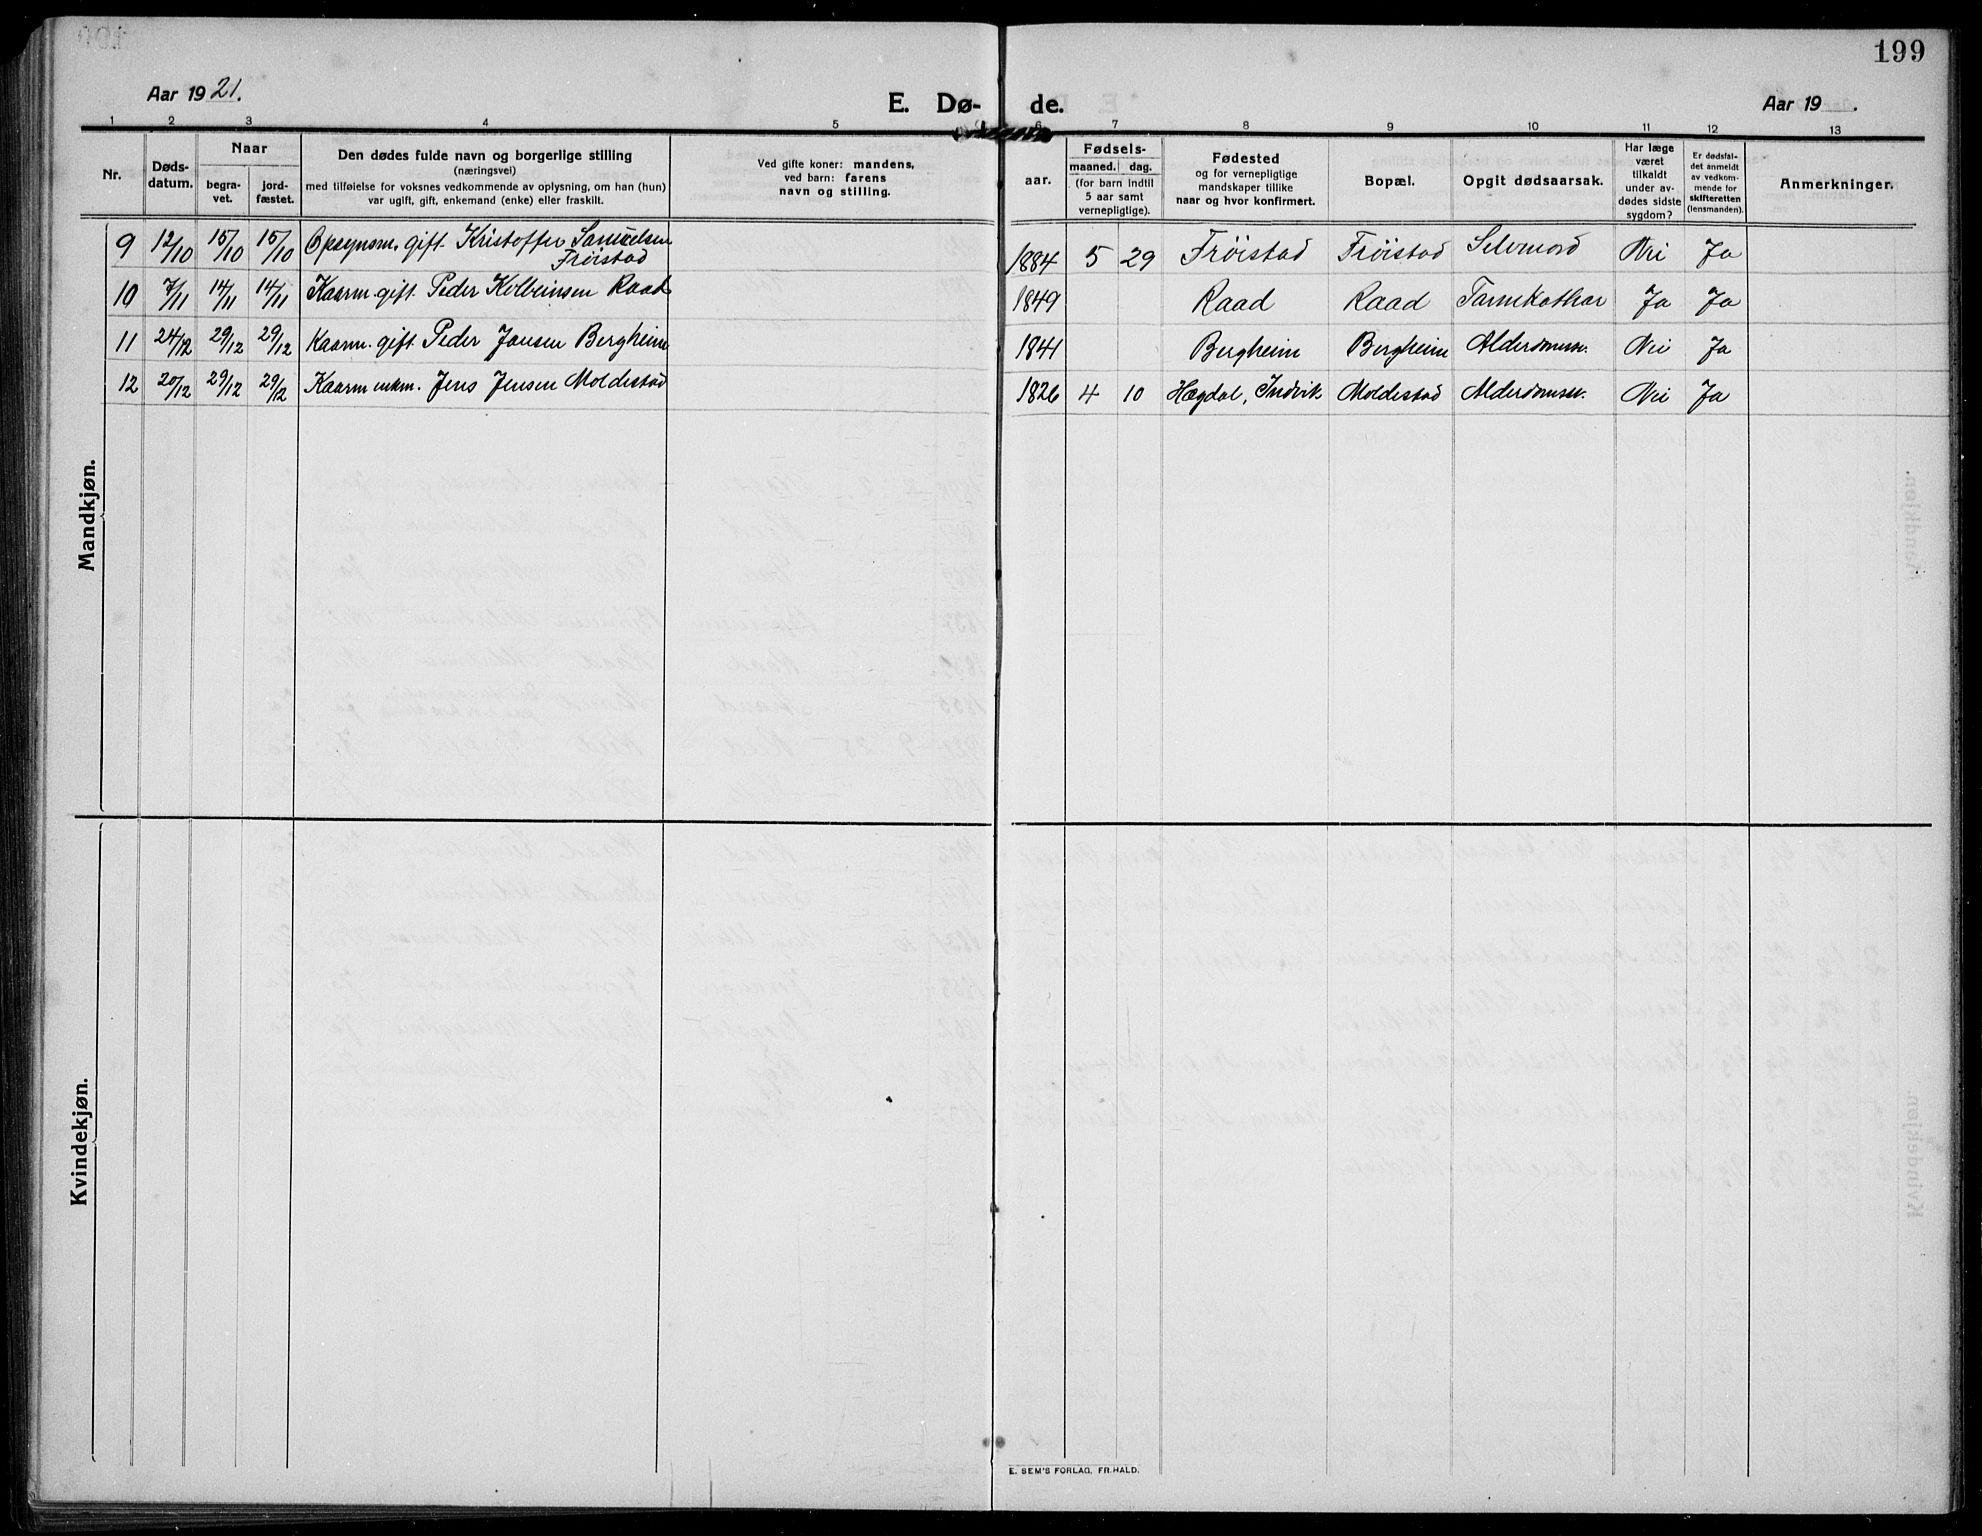 199
Aar 1921.
E. Dø-
de.
Aar 19 .
1 2 3 4 5 6 7 8 9 10 11 12 13
Nr.
Døds-
datum.
Naar
begra-
vet.
jord-
fæstet.
Den dødes fulde navn og borgerlige stilling
(næringsvei)
med tilføielse for voksnes vedkommende av oplysning, om han (hun)
var ugift, gift, enkemand (enke) eller fraskilt.
Ved gifte koner: mandens,
ved barn: farens
navn og stilling.
aar.
Fødsels-
maaned. dag.
(for barn indtil
5 aar samt
vernepligtige).
Fødested
og for vernepligtige
mandskaper tillike
naar og hvor konfirmert.
Bopæl.
Opgit dødsaarsak.
Har læge
været
tilkaldt
under av-
dødes sidste
sygdom?
Er dødsfal-
det anmeldt
av vedkom-
mende for
skifteretten
(lensmanden).
Anmerkninger.
Mandkjøn.
9 12/10 15/10 15/10 Opsynsm. gift. Kristoffer Samuelsen
Frøistad
1884 5 29 Frøistad Frøistad Selvmord Nei Ja
10 7/11 14/11 14/11 Kaarm. gift. Peder Kolbeinsen Raad 1849 Raad Raad Tarmkathar Ja Ja
11 24/12 29/12 29/12 Kaarm. gift. Peder Jansen Bergheim 1841 Bergheim Bergheim Alderdomssv. Nei Ja
12 20/12 29/12 29/12 Kaarm enkm. Jens Jensen Moldestad 1826 4 10 Hægdal, Indvik Moldestad Alderdomssv. Nei Ja
Kvindekjøn.
E. SEM'S FORLAG, FR.HALD.